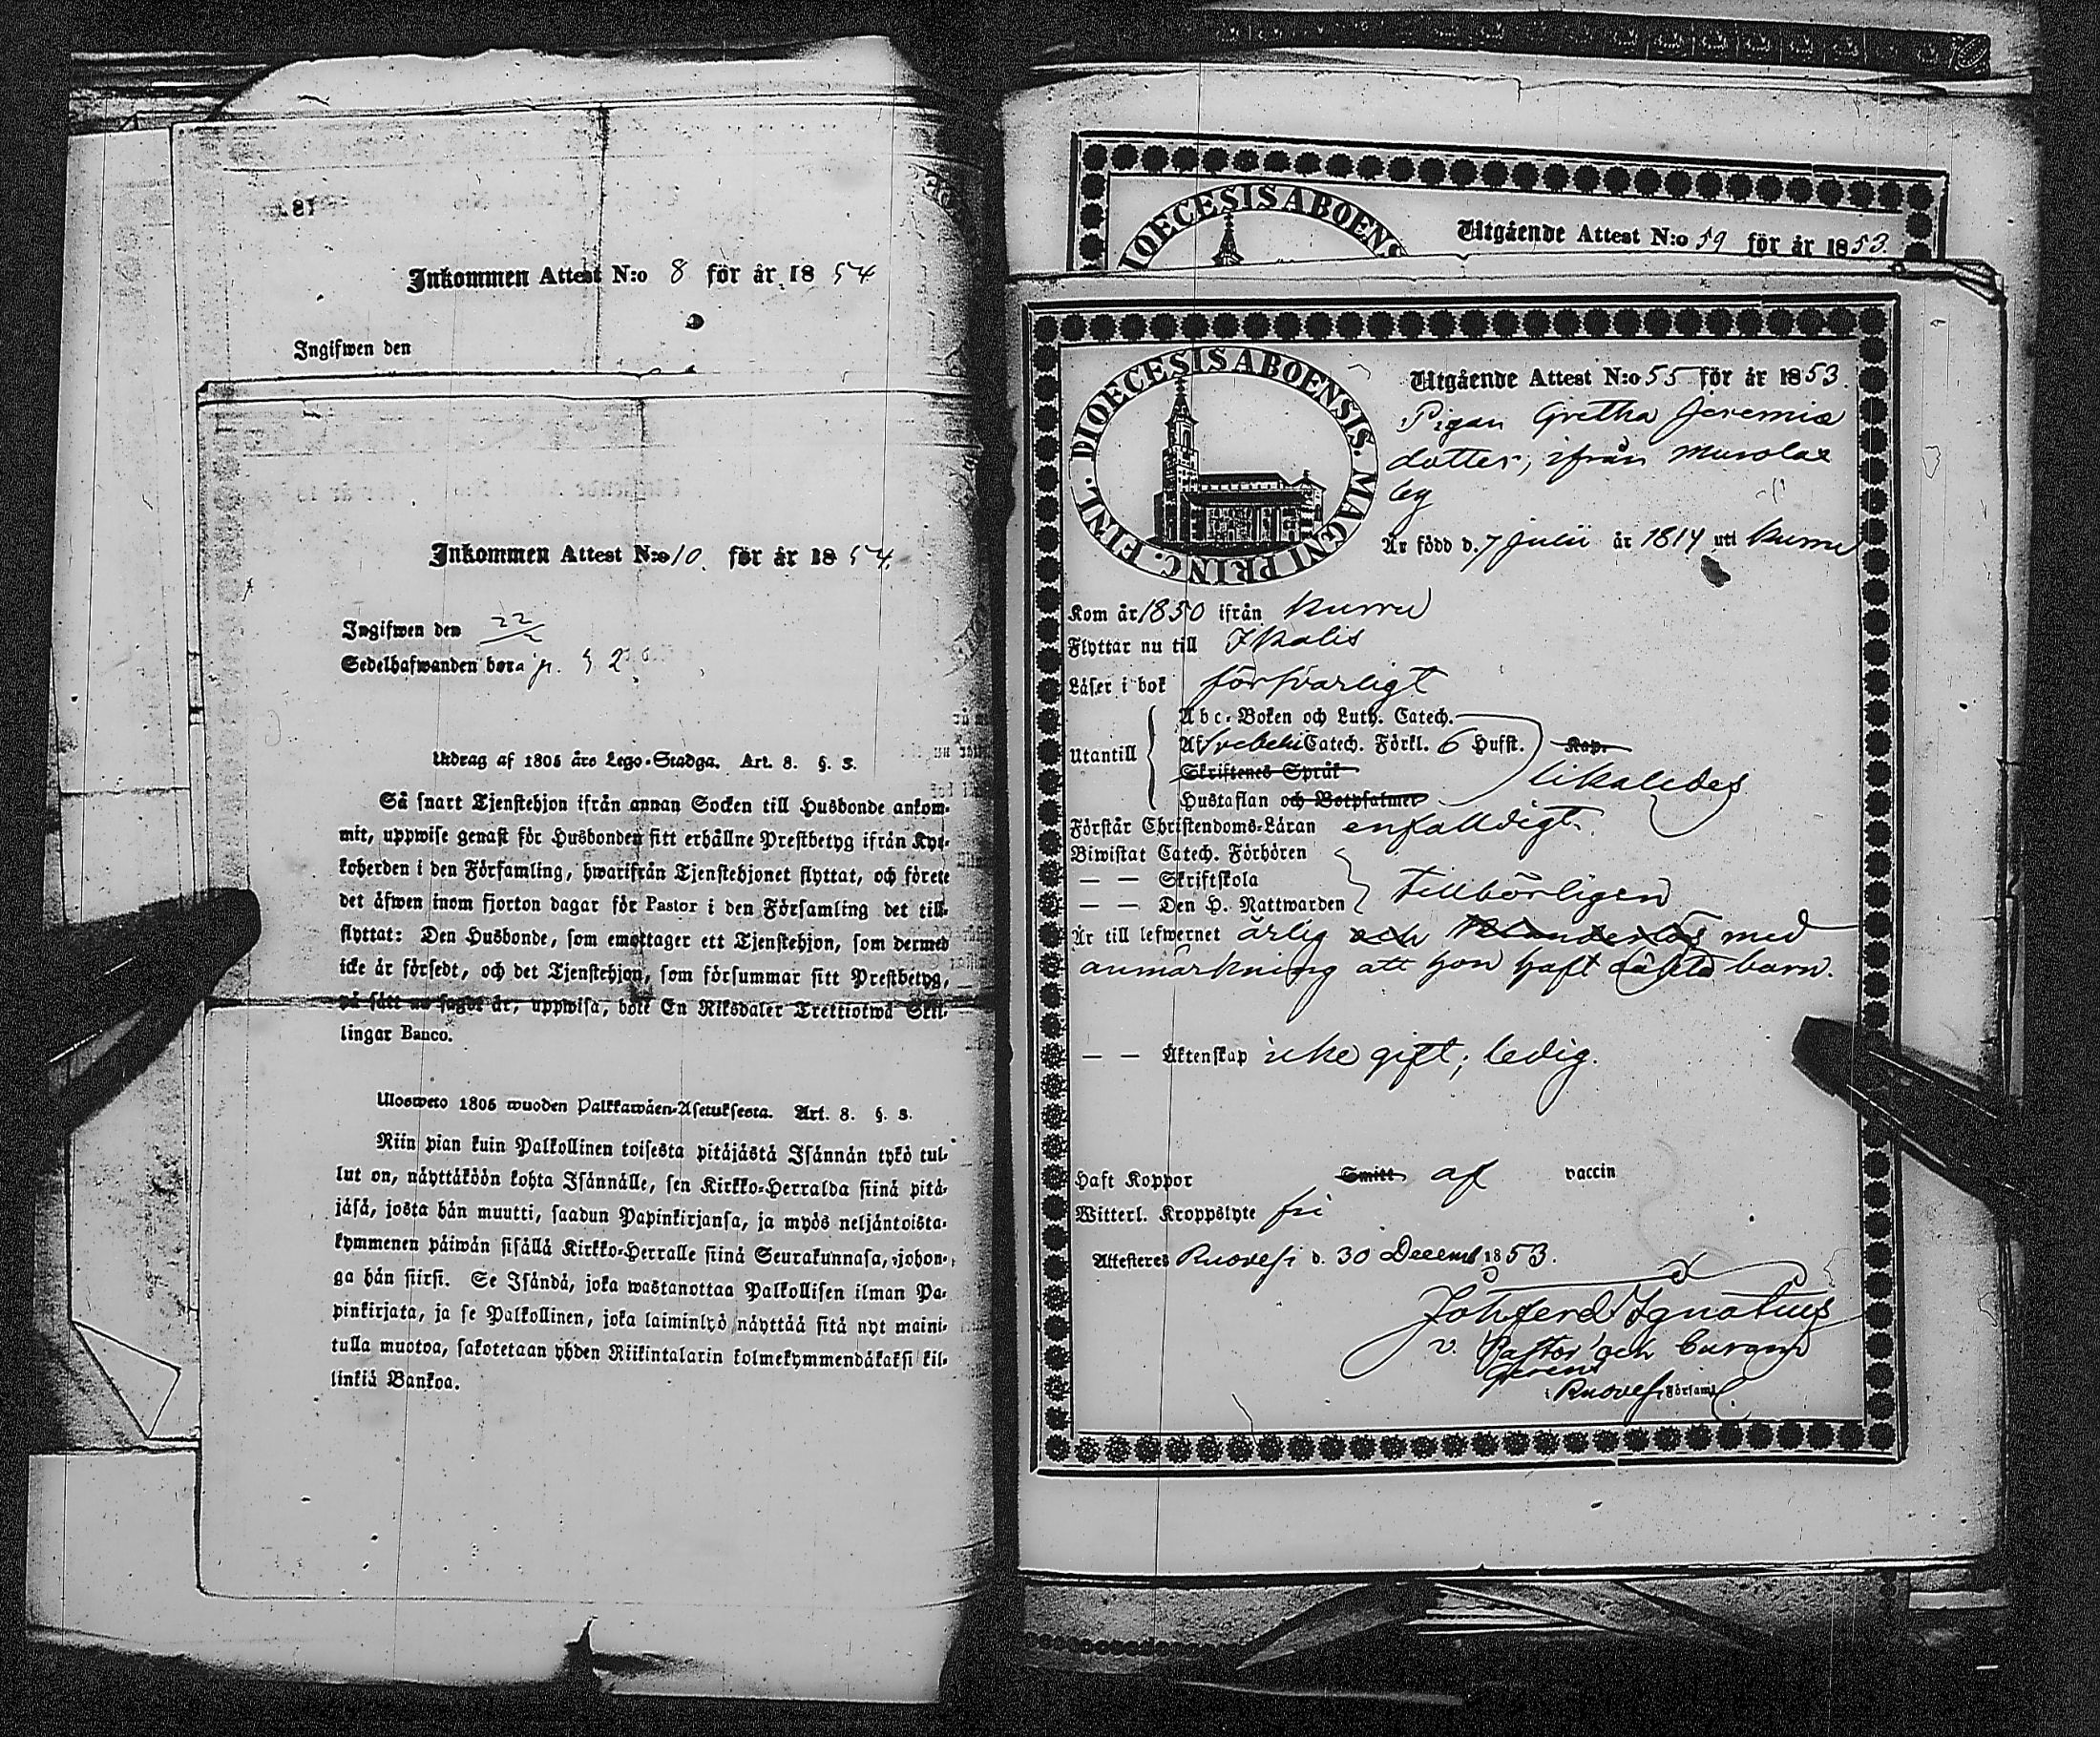 Inkommen Attest N:o 8 för år 18 54
Ingifwen den
Inkommen Attest N:o 10. för år 18 54.
Ingifwen den 22/2
Sedelhafwanden bor å p. 52
Utdrag af 1805 års Lego-Stadga. Art. 8. §. 3.
Så snart Tjenstehjon ifrån annan Socken till Husbonde ankom-
mit, uppwise genast för Husbonden sitt erhållne Prestbetyg ifrån Kyr-
koherden i den Församling, hwarifrån Tjenstehjonet flyttat, och förete
det äfwen inom fjorton dagar för Pastor i den Församling det till-
flyttat: Den Husbonde, som emottager ett Tjenstehjon, som dermed
icke är försedt, och det Tjenstehjon, som försummar sitt Prestbetyg,
på sätt nu sagdt är, uppwisa, böte En Riksdaler Trettiotwå Skil-
lingar Banco.
Ulosweto 1805 wuoden Palkkawäen-Asetuksesta. Art. 8. §. 3.
Niin pian kuin Palkollinen toisesta pitäjästä Isännän tykö tul-
lut on, näyttäköön kohta Isännälle, sen Kirkko-Herralda siinä pitä-
jäsä, josta hän muutti, saadun Papinkirjansa, ja myös neljäntoista-
kymmenen päiwän sisällä Kirkko-Herralle siinä Seurakunnasa, johon-
ga hän siirsi. Se Isändä, joka wastanottaa Palkollisen ilman Pa-
pinkirjata, ja se Palkollinen, joka laiminlyö näyttää sitä nyt maini-
tulla muotoa, sakotetaan yhden Riikintalarin kolmekymmendäkaksi kil-
linkiä Bankoa.
DIOECESIS ABOENS
Utgående Attest N:o 59 för år 1853.
DIOECESIS ABOENSIS. MAGNI PRINC. FINL.
Utgående Attest N:o 55 för år 1853.
Pigan Gretha Jeremiæ
dotter, ifrån Murolax
by
Är född d. 7 Julii år 1814 uti Kurru
Kom år 1850 ifrån Kurru
Flyttar nu till Ikalis
Läser i bok försvarligt
Utantill
Abc-Boken och Luth. Catech.
Af Svebelii Catech. Förkl. 6 Hufst. Kap.
Skriftenes Språk
likaledes
Hustaflan och Botpsalmer
Förstår Christendoms-Läran enfalldigt.
Biwistat Catech. Förhören
— — Skriftskola
tillbörligen
— — Den H. Nattwarden
Är till lefwernet ärlig och med
anmärkning att hon haft oäkta barn.
— — Äktenskap icke gift; ledig.
Haft Koppor Smitt af vaccin
Witterl. Kroppslyte fri
Attesteres Ruovesi d. 30 Decemb 1853.
Joh ferd Ignatius
v. Pastor och Curam
Gerens
i Ruovesi Församl